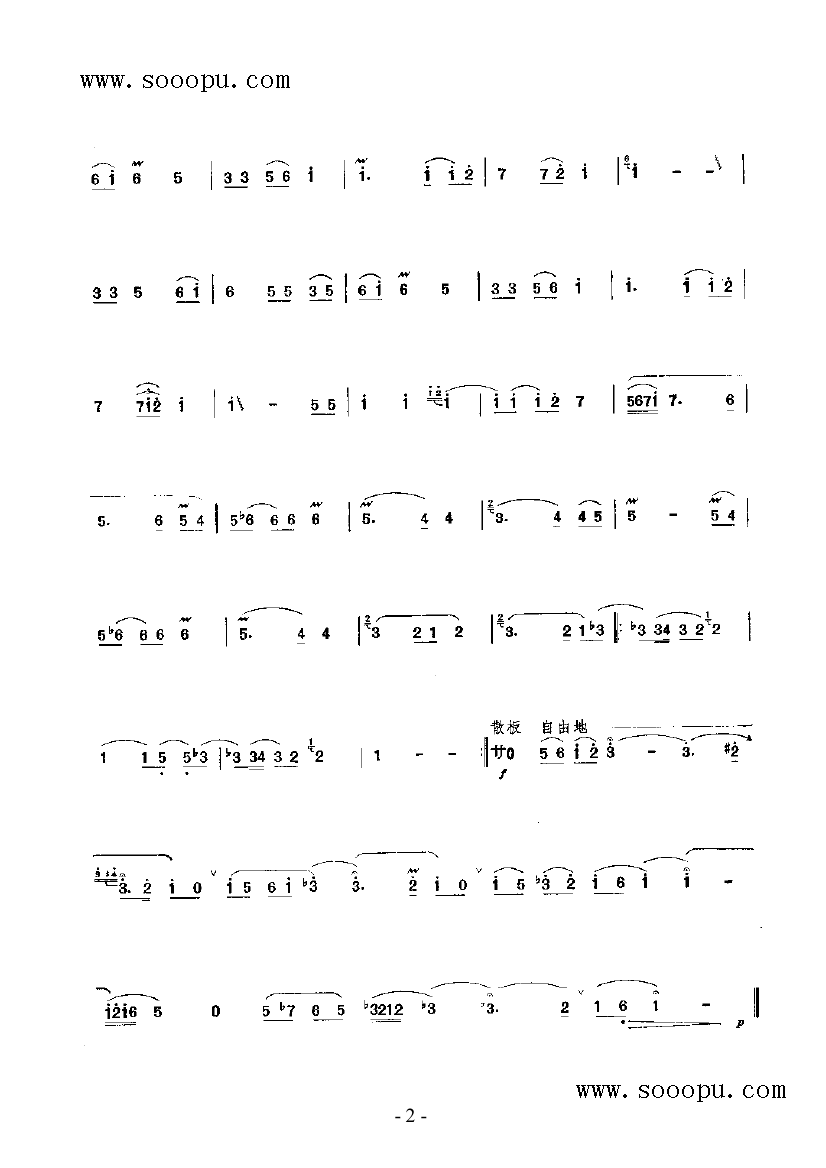 www.sooopu.com
6 i 6 5 | 3 3 5 6 i | i. i i 2 | 7 7 2 i | 6 i - - |
3 3 5 6 i | 6 5 5 3 5 | 6 i 6 5 | 3 3 5 6 i | i. i i 2 |
7 7 i 2 i | i - 5 5 | i i i 2 i | i i i 2 7 | 5 6 7 i 7. 6 |
5. 6 5 4 | 5 ♭6 6 6 6 | 5. 4 4 | 2 3. 4 4 5 | 5 - 5 4 |
5 ♭6 6 6 6 | 5. 4 4 | 2 3 2 1 2 | 2 3. 2 1 ♭3 |: ♭3 3 4 3 2 1 2 |
1 1 5 5 ♭3 | ♭3 3 4 3 2 1 2 | 1 - - :| 散板 自由地 サ 0 5 6 i 2 3 - 3. #2
f
3. 2 i 0 i 5 6 i ♭3 3. 2 i 0 i 5 ♭3 2 i 6 i i -
i 2 i 6 5 0 5 ♭7 6 5 ♭3 2 1 2 ♭3 3. 2 1 6 1 - ‖
p
www.sooopu.com
- 2 -